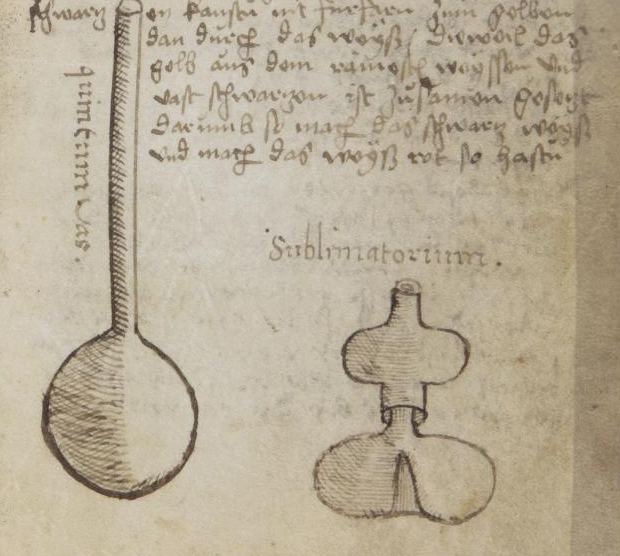 schwartz en kanstu nit furfaren zum gelben
dan durch das weyß, dieweil das
gelb aus dem reinesten weyssen und
vast schwartzen ist zusamen gesetzt
darumb so mach das schwartz weyß
und mach das weyß rot so hastu
quintum vas.
Sublimatorium.